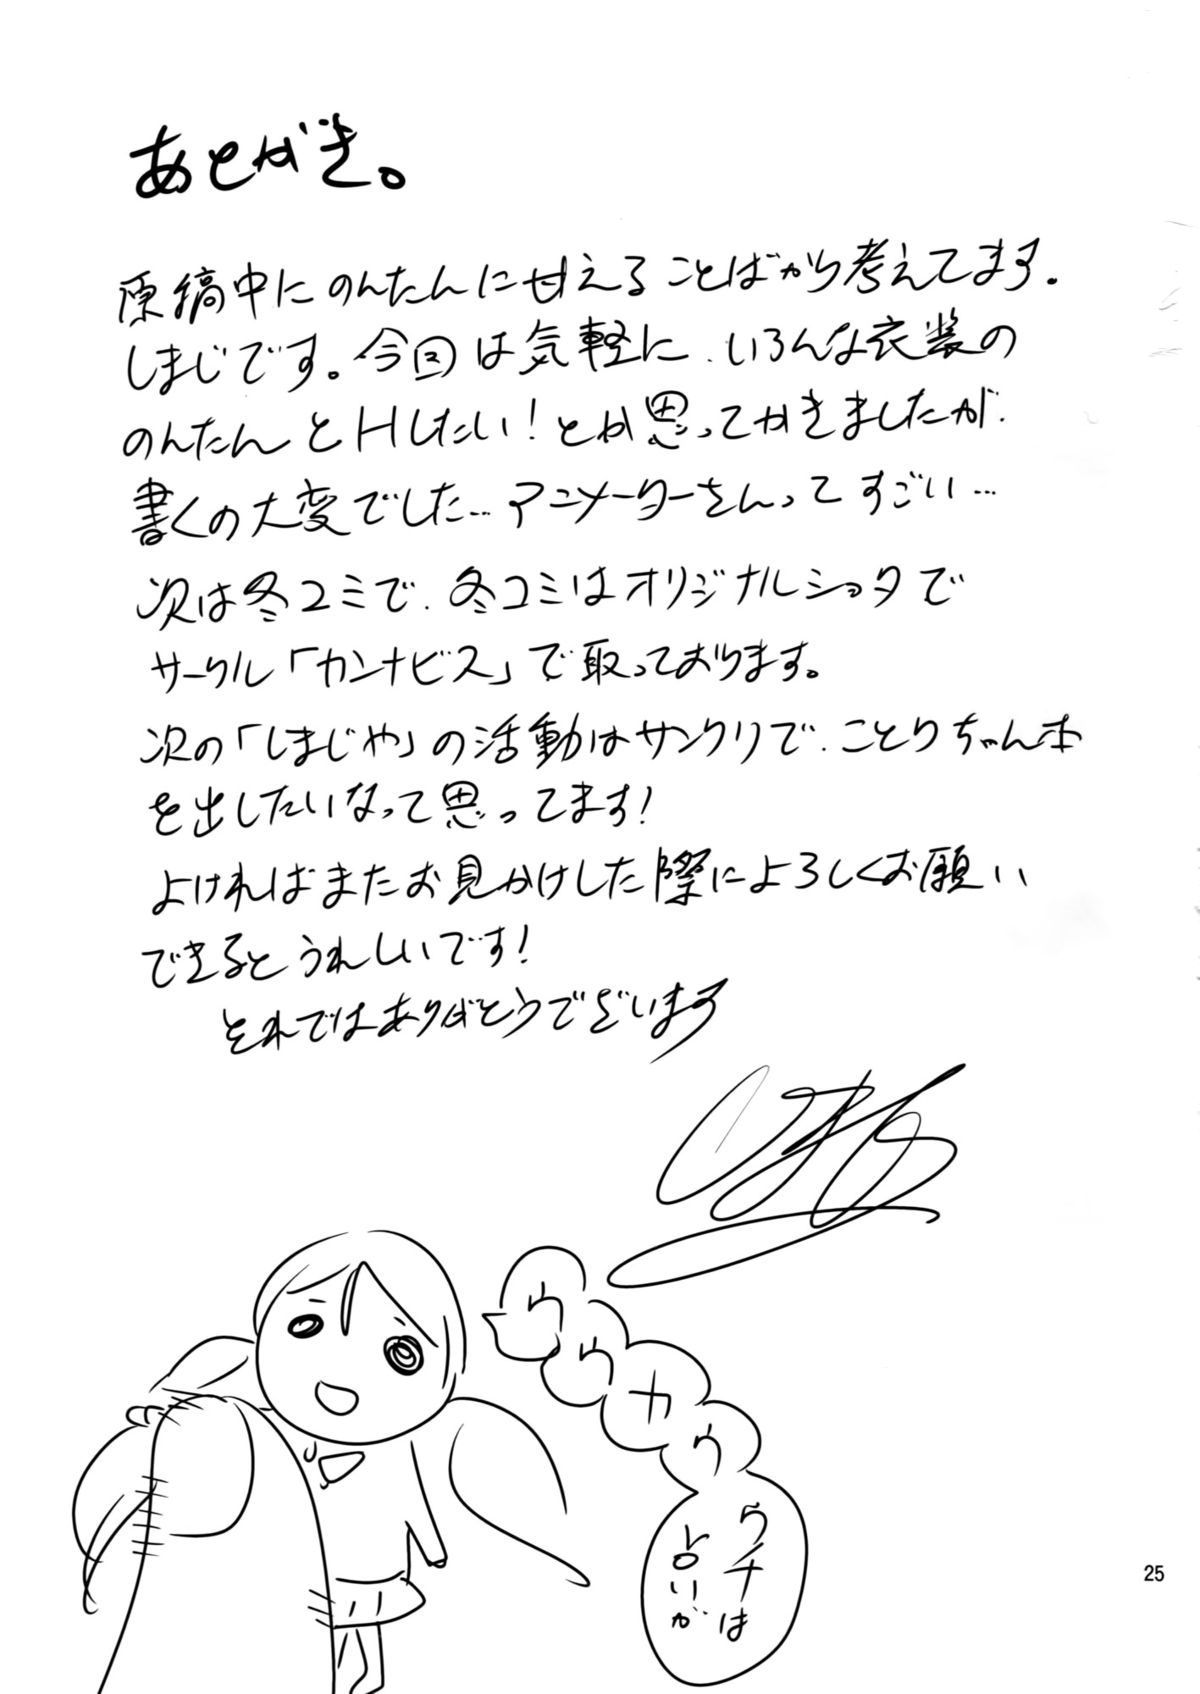 あとがき。
原稿中にのんたんに甘えることばかり考えてます。
しまじです。今回は気軽に、いろんな衣装の
のんたんとHしたい！とか思ってかきましたが、
書くの大変でした…アニメーターさんってすごい…
次は冬コミで、冬コミはオリジナルショタで
サークル「カンナビス」で取っております。
次の「しまじや」の活動はサンクリで、ことりちゃん本
を出したいなって思ってます！
よければまたお見かけした際によろしくお願い
できるとうれしいです！
それではありがとうございます
ウウカウ
ウチは
25